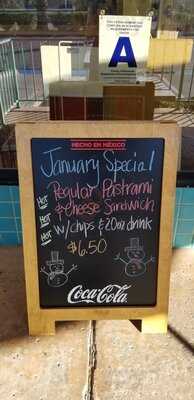 A
HECHO EN MÉXICO
January Special
Hot Regular Pastrami
Hot & Cheese Sandwich
Hot w/ chips & 20oz drink
$6.50
Coca-Cola